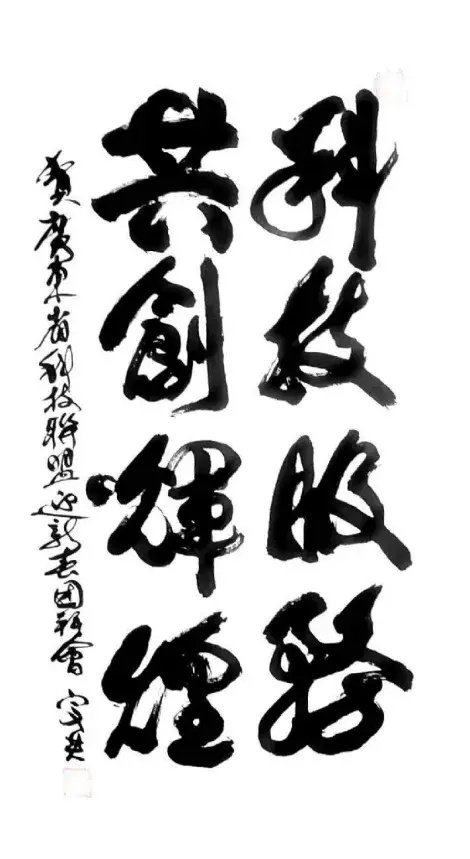 科技服務
共創輝煌
賀廣東省科技聯盟迎新春團拜會